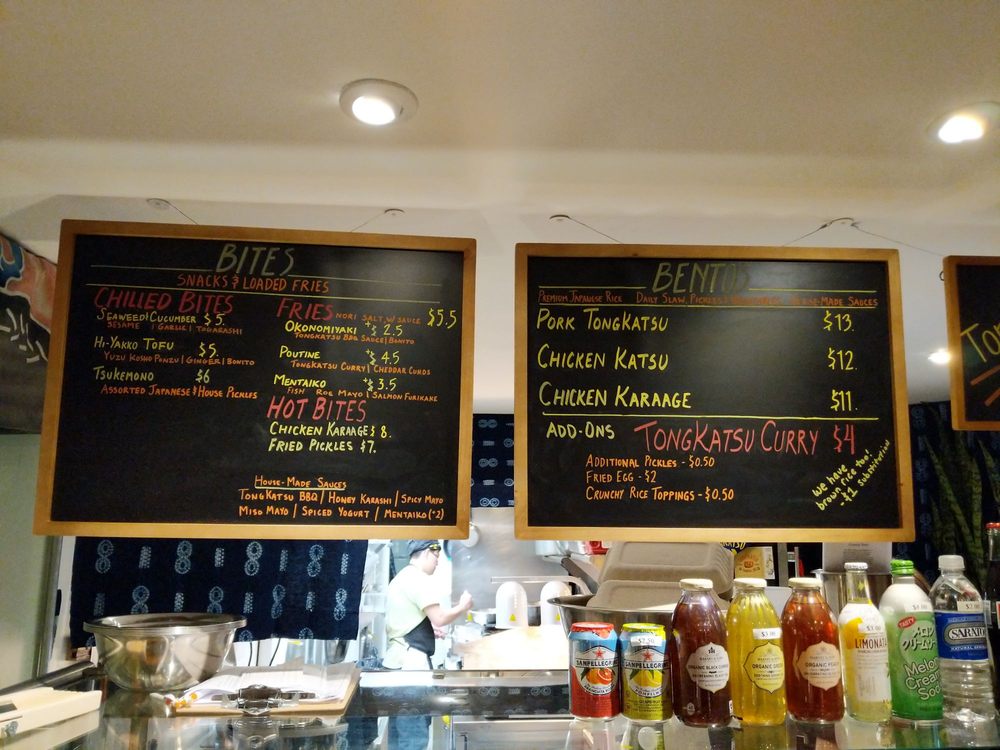 BITES
SNACKS & LOADED FRIES
CHILLED BITES
SEAWEED & CUCUMBER $5
SESAME | GARLIC | TOGARASHI
HI-YAKKO TOFU $5
YUZU KOSHO PONZU | GINGER | BONITO
TSUKEMONO $6
ASSORTED JAPANESE & HOUSE PICKLES
FRIES NORI SALT, W/ SAUCE $5.5
OKONOMIYAKI +$2.5
TONGKATSU BBQ SAUCE | BONITO
POUTINE +$4.5
TONGKATSU CURRY | CHEDDAR CURDS
MENTAIKO +$3.5
FISH ROE MAYO | SALMON FURIKAKE
HOT BITES
CHICKEN KARAAGE $8.
FRIED PICKLES $7.
HOUSE-MADE SAUCES
TONGKATSU BBQ | HONEY KARASHI | SPICY MAYO
MISO MAYO | SPICED YOGURT | MENTAIKO (+2)
BENTOS
PREMIUM JAPANESE RICE DAILY SLAW, PICKLES & HOUSE-MADE SAUCES
PORK TONGKATSU $13.
CHICKEN KATSU $12.
CHICKEN KARAAGE $11.
ADD-ONS TONGKATSU CURRY $4
ADDITIONAL PICKLES - $0.50
FRIED EGG - $2
CRUNCHY RICE TOPPINGS - $0.50
we have
brown rice too!
- $1 substitution
TON
SANPELLEGRINO
$2.50
SANPELLEGRINO
ORGANIC BLACK
ORGANIC GREEN
$3.00
ORGANIC PEACH
$3.00
LIMONATA
$3.00
TASTY
メロン
クリームソーダ
Melon
Cream
Soda
$2.00
SARATOGA